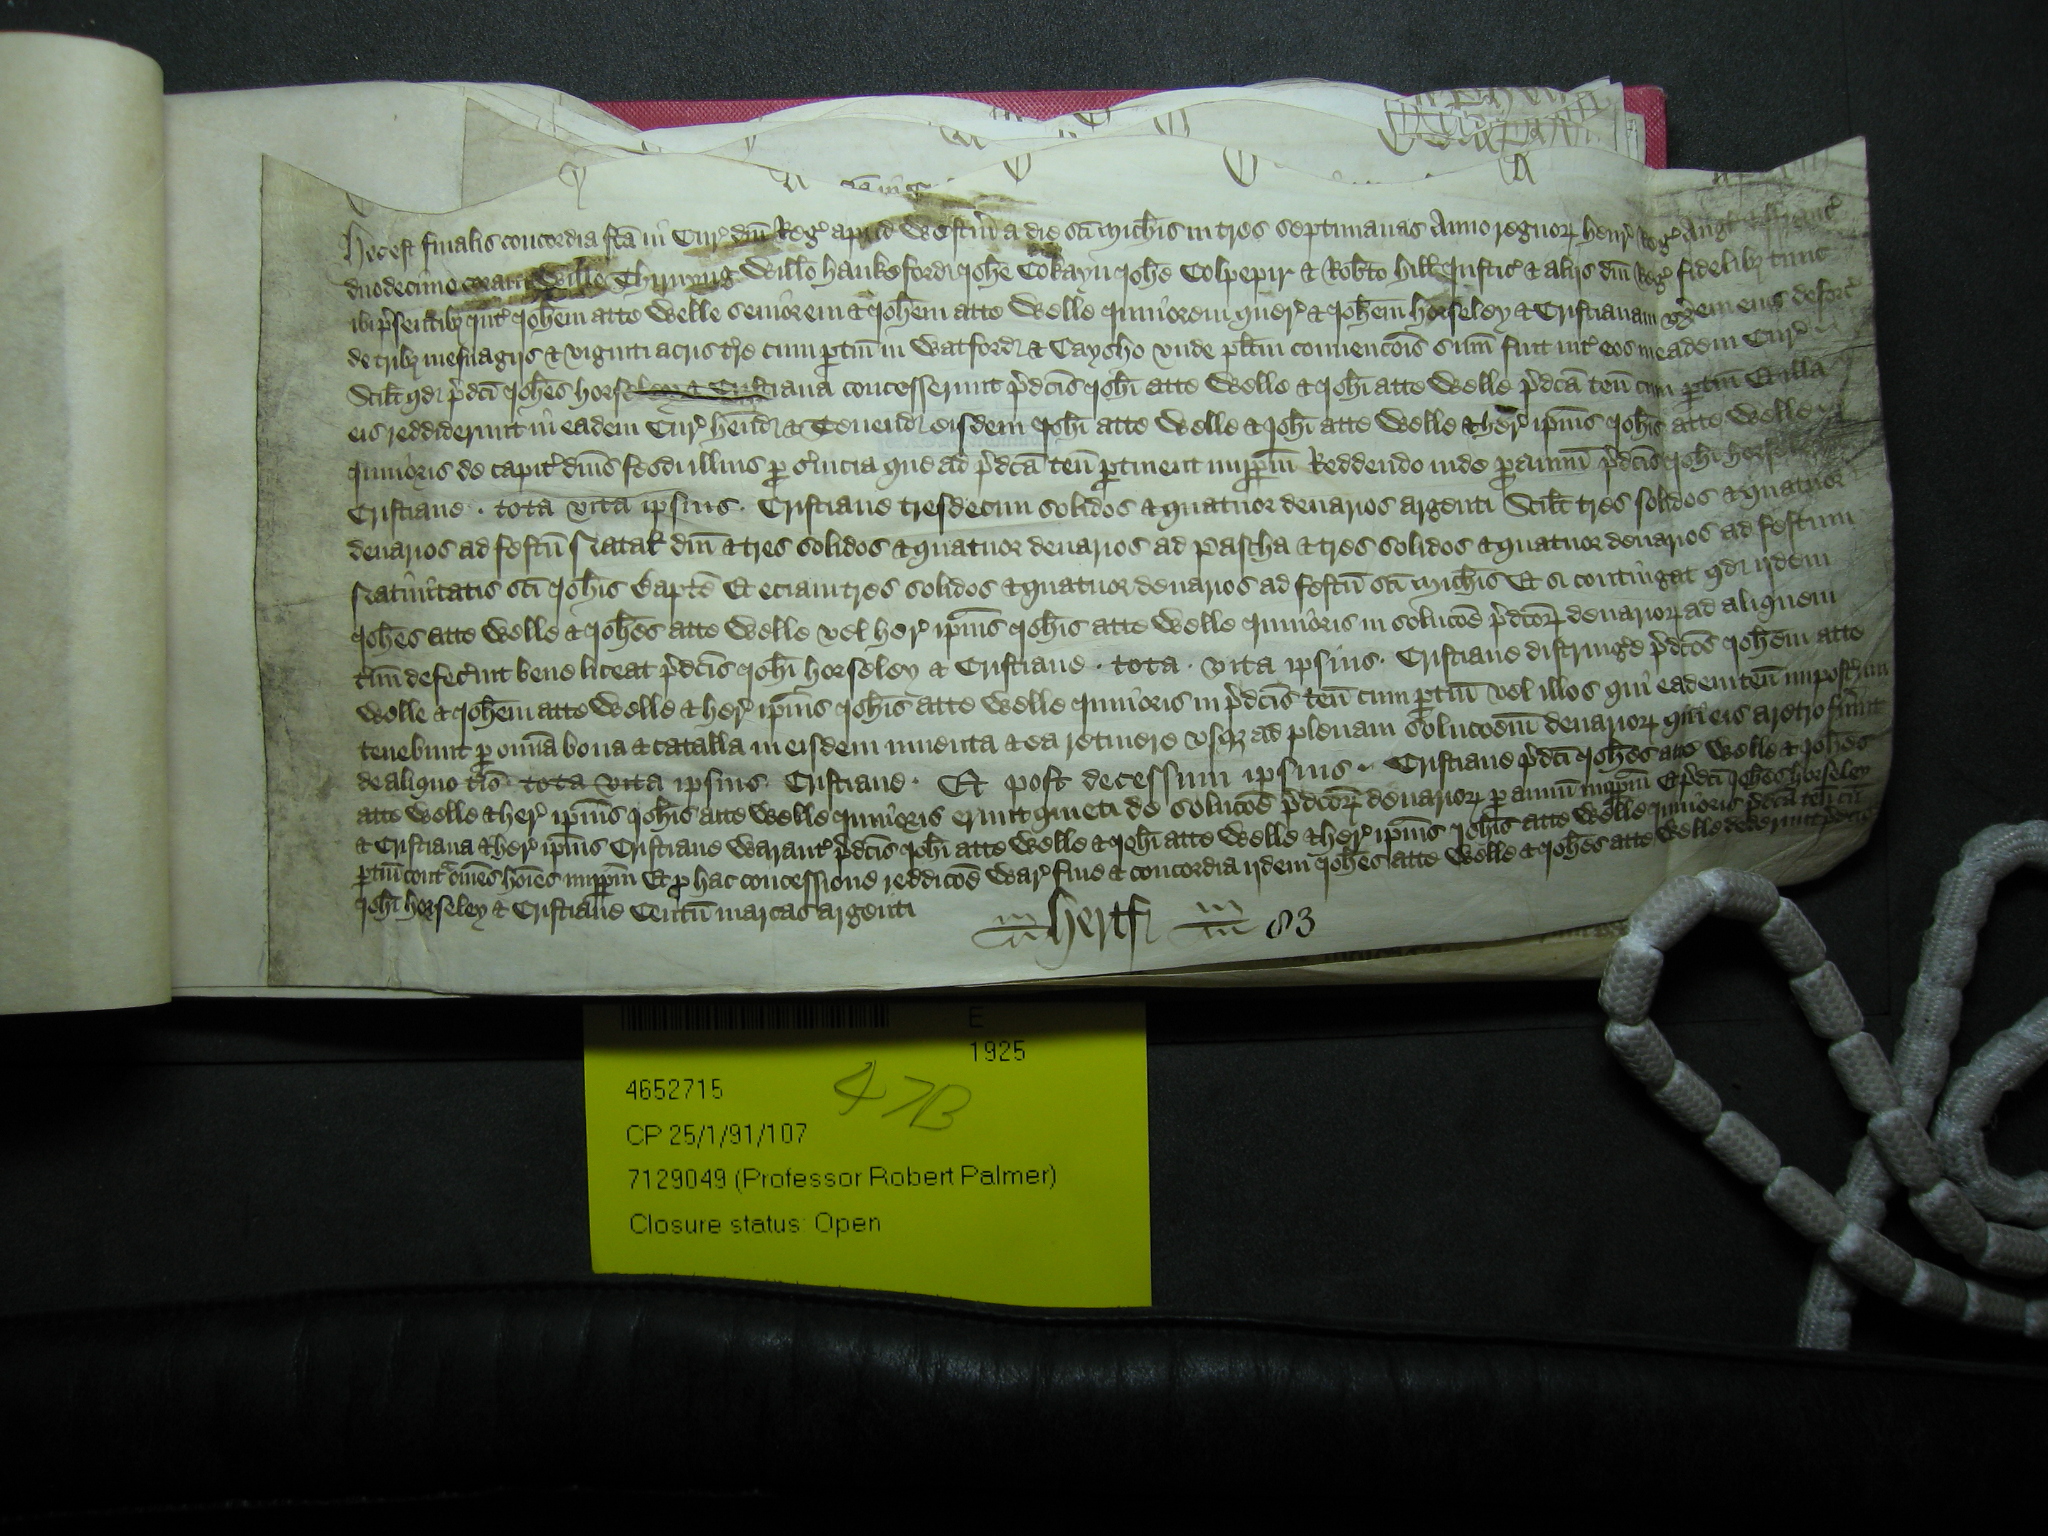 Hec est finalis concordia fca in Cur dni Reg apud Westm a die sci Michis in tres septimanas Anno regnor Henr Reg Angl
duodecimo coram Willo Thirnyng Willo Hankeford Johe Cokayn Johe Colpepir & Robto Hill Justic & alijs dni Reg fidelibz tunc
ibi psentibz Int Johem atte Welle seniorem & Johem atte Welle Juniorem quer & Johem Horseley & Cristianam vxem eius deforc
de tribz mesuagijs & viginti acris tre cum ptin in Watford & Caysho vnde pltm convencois sum fuit int eos in eadem Cur
Scilt qd pdci Johes Horseley & Cristiana concesserunt pdcis Johi atte Welle & Johi atte Welle pdca ten cum ptin Et illa
eis reddiderunt in eadem Cur Hend & Tenend eisdem Johi atte Welle & Johi atte Welle & her ipius Johis atte Welle
Junioris de capit dnis feodi illius p svicia que ad pdca ten ptinent imppm Reddendo inde p annu pdcis Johi Horseley
Cristiane . tota vita ipsius . Cristiane tresdecim solidos & quatuor denarios argenti Scilt tres solidos & quatuor
denarios ad festu Natal dni & tres solidos & quatuor denarios ad Pascha & tres solidos & quatuor denarios ad festum
Nativitatis sci Johis Bapte Et eciam tres solidos & quatuor denarios ad festu sci Michis Et si contingat qd ijdem
Johes atte Welle & Johes atte Welle vel her ipius Johis atte Welle Junioris in solucoe pdcor denarior ad aliquem
tmin defecint bene liceat pdcis Johi Horseley & Cristiane . tota . vita ipsius . Cristiane distringe pdcos Johem atte
Welle & Johem atte Welle & her ipius Johis atte Welle Junioris in pdcis ten cum ptin vel illos qui eadem ten imposterum
tenebunt p omia bona & catalla in eisdem inventa & ea retinere vsqz ad plenam solucoem denarior qui eis aretro fuint
de aliquo tmio tota vita ipsius Cristiane . Et post decessum ipsius . Cristiane pdci Johes atte Welle & Johes
atte Welle & her ipius Johis atte Welle Junioris erunt quieti de solucoe pdcor denarior p annu imppm Et pdci Johes Horseley
& Cristiana & her ipius Cristiane Warant pdcis Johi atte Welle & Johi atte Welle & her ipius Johis atte Welle Junioris pdca ten cu
ptin cont omes hoies imppm Et p hac concessione reddicoe War fine & concordia ijdem Johes atte Welle & Johes atte Welle dederunt pdcis
Johi Horseley & Cristiane Centu marcas argenti
Hertf 83
E
1925
4652715
47B
CP 25/1/91/107
7129049 (Professor Robert Palmer)
Closure status: Open